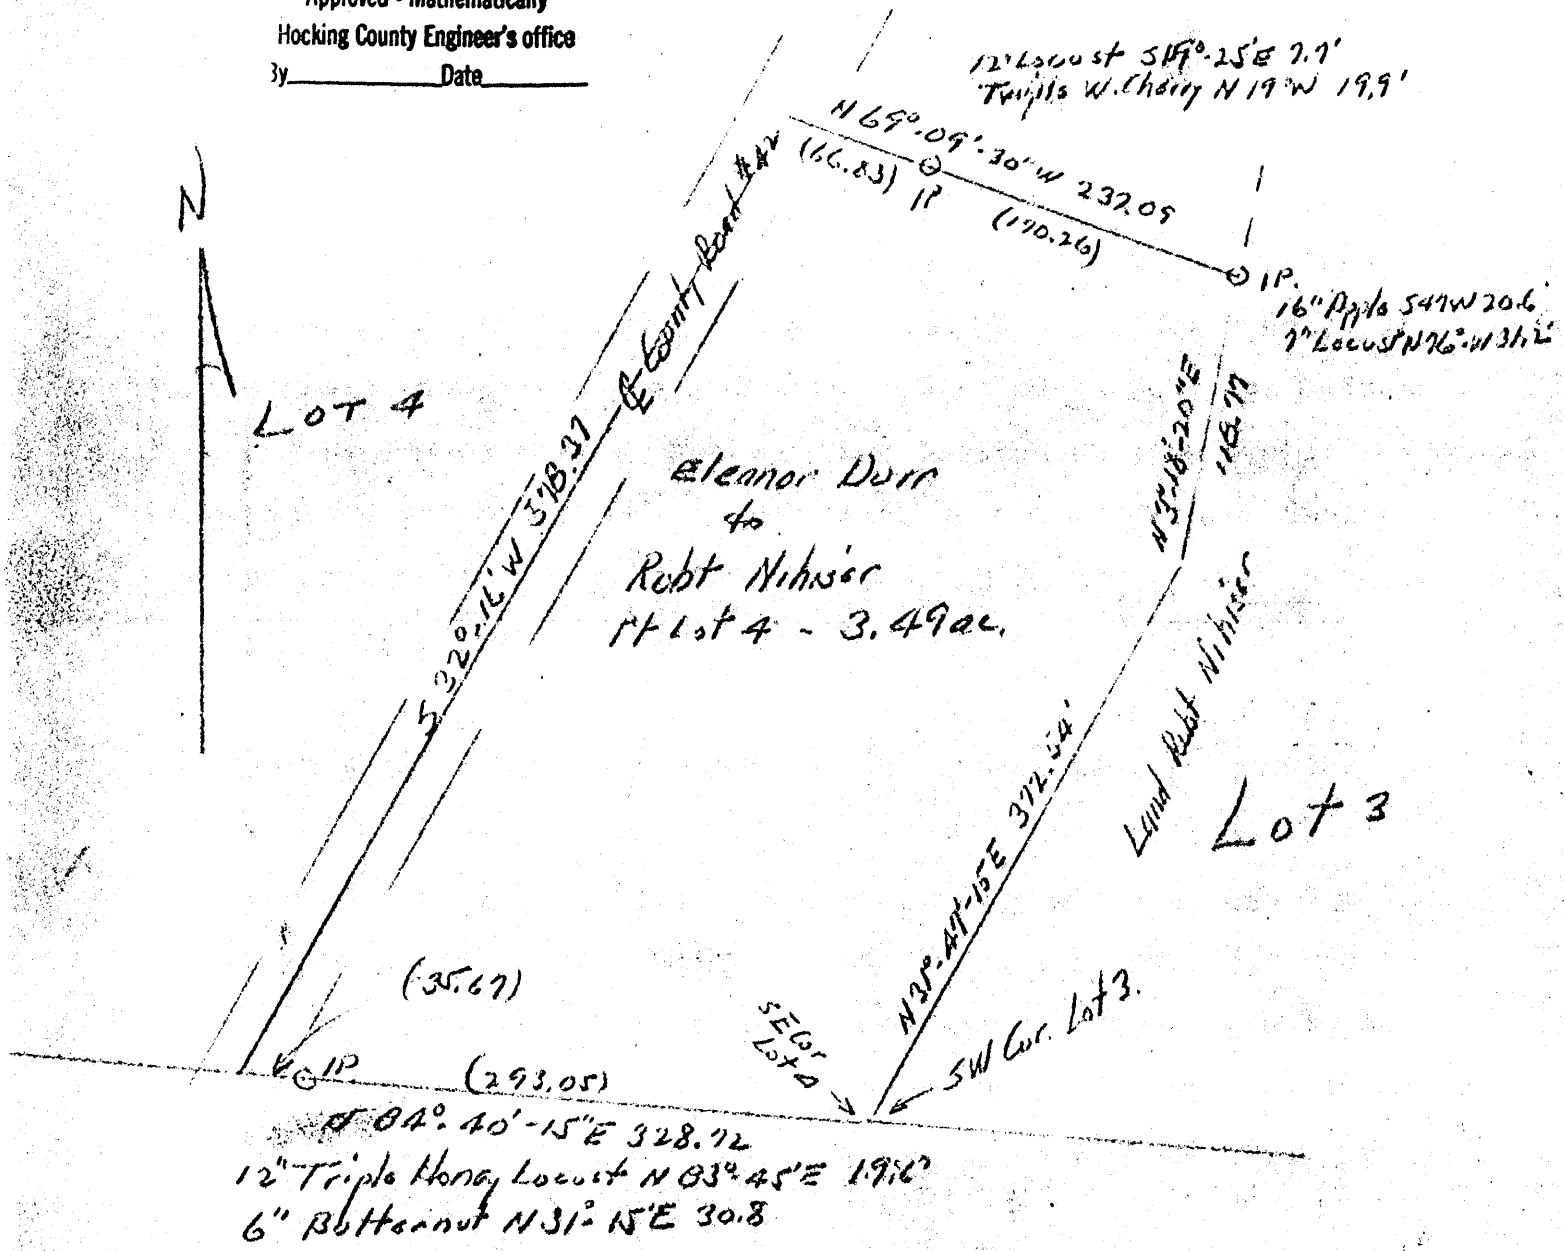 Approved - Mathematically
Hocking County Engineer's office
By________Date________
12" Locust S19°-25'E 7.7'
W. Cherry N 19°W 19.9'
N
N 69°-09'-30" W 232.09
(66.83)
IP
(170.26)
IP.
16" Apple S47W 20.6'
7" Locust N76°-W 31.2'
County Road #42
LOT 4
S 32°-16' W 378.37
Eleanor Durr
to
Robt Nihiser
Pt Lot 4 - 3.49ac.
N3°-18'-20"E
118.77
Land Robt Nihiser
Lot 3
N35°-47'-15"E 372.54'
(35.67)
IP
(293.05)
SE Cor
Lot 4
SW Cor. Lot 3.
N 84°-40'-15"E 328.72
12" Triple Honey Locust N 83°-45'E 19.6'
6" Butternut N31°-15'E 30.8